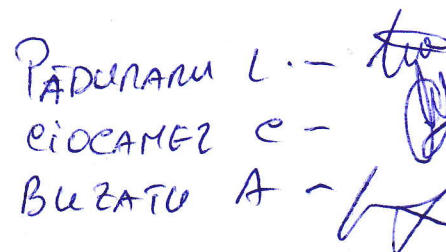 PĂDURARU L. -
CIOCAMEZ C -
BUZATU A -